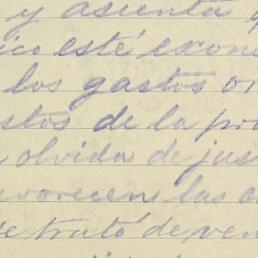 y asienta q
ico esté exone
los gastos or
stos de la pro
olvida de jus
avorecen las a
se trató de ven